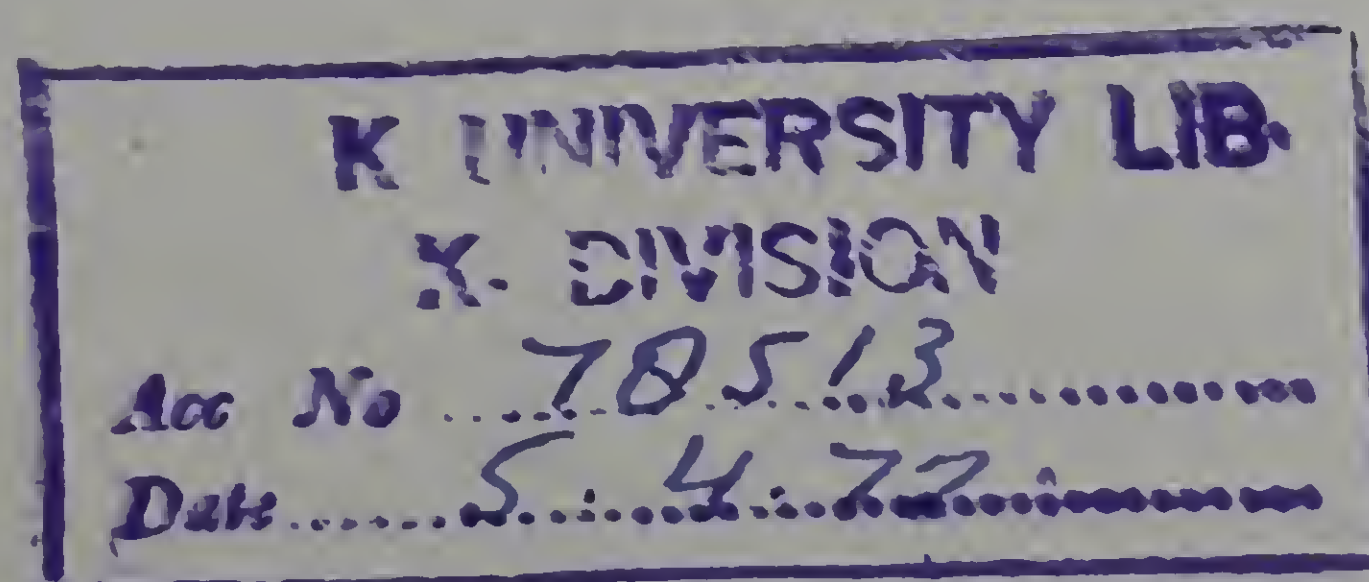 K UNIVERSITY LIB.
K- DIVISION
Acc No 78513
Date 5.4.77